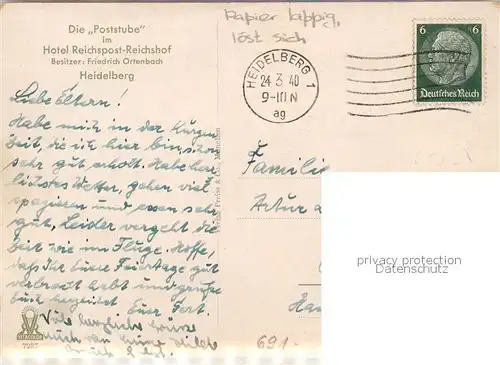 Die „Poststube"
im
Hotel Reichspost-Reichshof
Besitzer: Friedrich Ortenbach
Heidelberg
Papier lappig,
löst sich
HEIDELBERG 1
24.3.40
9-10 N
ag
6 6
Deutsches Reich
Liebe Eltern!
Habe mich in der kurzen
Zeit, die ich hier bin, schon
sehr gut erholt. Habe herr
lichstes Wetter, gehen viel
spazieren und essen sehr
gut. Leider vergeht die
Zeit wie im Fluge. Hoffe,
daß Ihr Eure Feiertage gut
verbracht habt und grüße
Euch herzlichst Euer
Viele herzliche Grüsse
auch von
Familie
Artur
Ha
privacy protection
Datenschutz
7287
691.-